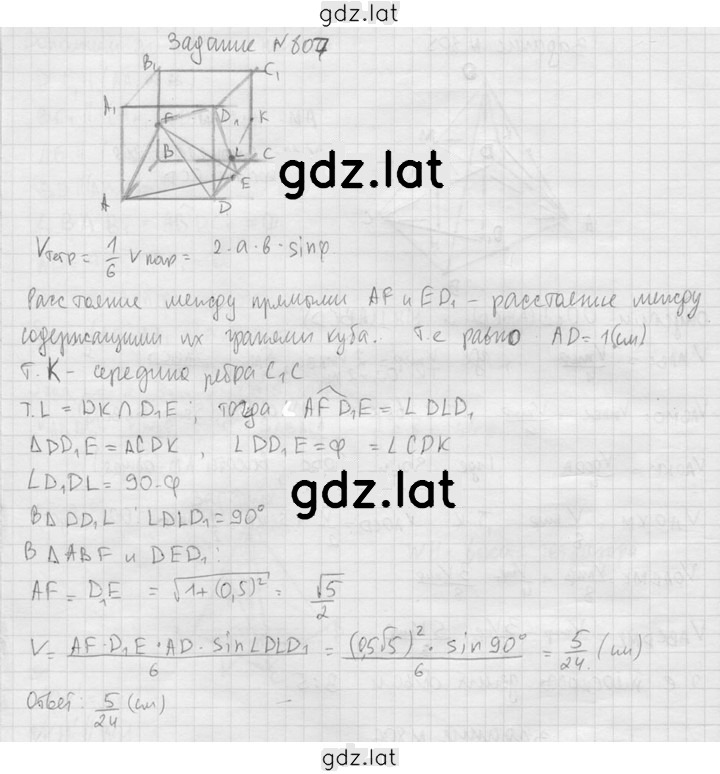 gdz.lat
Задание №807
B₁ C₁
A₁ D₁ K
F
B L C
E
A D
gdz.lat
Vтетр = 1/6 Vпар = 2·a·b·sinφ
Расстояние между прямыми AF и ED₁ – расстояние между
содержащими их гранями куба. Т.е равно AD = 1(см)
т. K – середина ребра C₁C
т. L = DK ∩ D₁E ; тогда AF D₁E = ∠DLD₁
△DD₁E = △CDK , ∠DD₁E = φ = ∠CDK
∠D₁DL = 90-φ
В △DD₁L ∠DLD₁ = 90°
gdz.lat
В △ABF и DED₁:
AF = D₁E = √(1+(0,5)²) = √5/2
V = AF·D₁E·AD·sin∠DLD₁/6 = (0,5√5)²·sin90°/6 = 5/24 (см)
Ответ: 5/24 (см)
gdz.lat